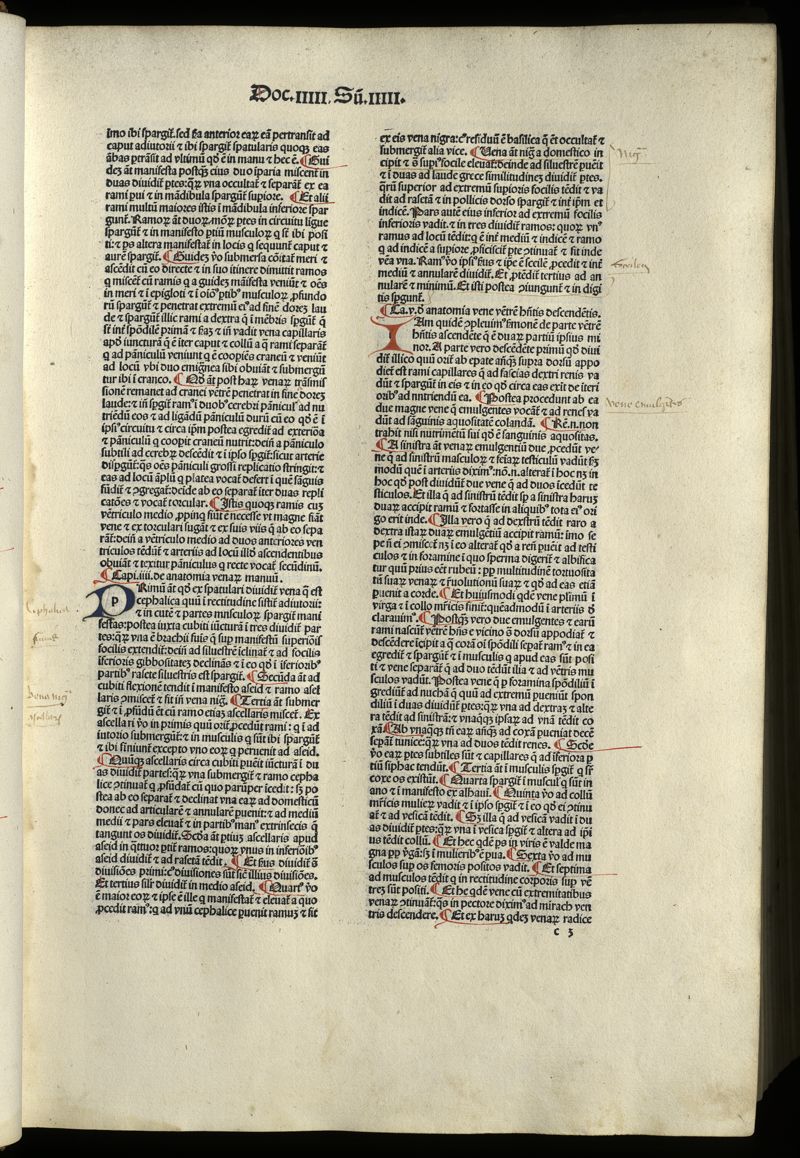 Doc.IIIII. Sū.IIIII.
Imo ibi spargit̄. sed ħa anterior eaꝝ eā pertransit ad
caput adiutorii ⁊ ibi spargit̄ spatularis quoqȝ eas
ābas ꝑtrāsit ad vltimū qđ ē in manu ⁊ hec ē. ¶ Gui
deȝ āt manifesta postqȝ̄ eius duo īparia miscent̄ in
duas diuidit̄ ptes: qꝝ vna occultat̄ ⁊ separat̄ ex ea
rami pui ⁊ in mādibula spargūt̄ supiore. ¶ Et alii
rami multū maiores istis ī mādibula inferiore spar
gunt̄.
spargūt̄ ⁊ in manifesto ptiū musculoꝝ q̄ st̄ ibi posi
ti: ⁊ ps altera manifestat̄ in locis q̄ sequunt̄ caput ⁊
aurē spargit̄. ¶ Guideȝ v̊o submersa cōitat̄ meri ⁊
ascēdit cū eo directe ⁊ in suo itinere dimittit ramos
q̄ miscent̄ cū ramis q̄ a guideȝ māifesta veniūt ⁊ oēs
in meri ⁊ ī epigloti ⁊ ī oīb⁹ ptib⁹ musculoꝝ ꝓfundo
rū spargūt̄ ⁊ penetrat extremū ei⁹ ad finē doreȝ lau
de ⁊ spargūt̄ illic rami a dextra q̄ ī mēbris spgūt̄ q̄
st̄ īnt̄ spōdilē primā ⁊ ẜaȝ ⁊ iñ vadit vena capillaris
apđ iūcturā q̄ ē iter caput ⁊ collū a q̄ rami separāt̄
q̄ ad pāniculū veniunt q̄ ē coopiēs craneū ⁊ veniūt
ad locū vbi duo emignea sibi obuiāt ⁊ submergū
tur ibi ī craneo. ¶ Qđ āt post haꝝ venaꝝ trāsmis
sionē remanet ad cranei vētrē penetrat in fine doreȝ
laude:
triēdū eos ⁊ ad ligādū pāniculū durū cū eo qđ ē ī
ipsi⁹ circuitu ⁊ circa ipm̄ postea egredit̄ ad exteriōa
⁊ pāniculū q̄ coopit craneū nutrit: deiñ a pāniculo
subtili ad cerebꝝ descēdit ⁊ ī ipso spgit̄: sicut arterie
dispgūt̄: qs oēs pāniculi grossi replicatio stringit: ⁊
eas ad locū āplū q̄ platea vocat̄ defert ī quē sāguis
fūdit̄ ⁊ ꝯgregat̄: deīde ab eo separat̄ iter duas repli
catōes ⁊ vocat̄ torcular. ¶ Istis quoqȝ ramis cuȝ
vētriculo medio ꝓpinq̄ siūt ē necesse vt magne siāt
vene ⁊ ex torculari sugāt ⁊ ex suis viis q̄ ab eo sepa
rāt̄: deiñ a vētriculo medio ad duos anteriores ven
triculos tēdūt̄ ⁊ arteriis ad locū illōꝝ ascendentibus
obuiāt ⁊ texitur pāniculus q̄ recte vocat̄ secūdinū.
¶ Capi.iiii. de anatomia venaꝝ manuū.
PRimū āt qđ ex spatulari diuidit̄ vena q̄ est
cephalica quū ī rectitudine sistit̄ adiutorii:
⁊ in cute ⁊ partes musculoꝝ spargit̄ mani
festas: postea iuxta cubiti iūcturā ī tres diuidit̄ par
tes: qꝝ vna ē brachii funis q̄ sup manifestū superiōis
focilis extendit̄: deiñ ad siluestrē īclinat̄ ⁊ ad focilis
īferioris gibbositateȝ declināt ⁊ ī eo qđ ī īferiorib⁹
partib⁹ rasete siluestris est spargit̄. ¶ Secūda āt ad
cubiti flexionē tendit ī manifesto aseid ⁊ ramo ascel
laris ꝯmiscet̄ ⁊ fit iñ vena nigᵃ. ¶ Tertia āt submer
git̄ ⁊ ī ꝓfūdū ēt cū ramo etiaȝ ascellaris miscet̄. Ex
ascella ri v̊o in primis quū orit̄ ꝓcedūt rami: q̄ ī ad
iutorio submergūt̄: ⁊ in musculis q̄ sūt ibi spargūt̄
⁊ ibi finiunt̄ excepto vno eoꝝ q̄ peruenit ad aseid.
¶ Quūqȝ ascellaris circa cubiti puēit iūcturā ī du
as diuidit̄ partes: qꝝ vna submergit̄ ⁊ ramo cepha
lice ꝯtinuat̄ q̄ ꝓfūdat̄ cū quo parūper īcedit: sȝ po
stea ab eo separat̄ ⁊ declinat vna eaꝝ ad domesticū
donec ad articularē ⁊ annularē puenit: ⁊ ad mediū
medii ⁊ pars eleuat̄ ⁊ in partib⁹ man⁹ extrinsecis q̄
tangunt os diuidit̄. Secđa āt ptiuȝ ascellaris apud
aseid in q̄ttuor ptit̄ ramos: quoꝝ vnus in inferiōib⁹
aseid diuidit̄ ⁊ ad rasetā tēdit. ¶ Et ẜus diuidit̄ ō
diuisiōes primi: ⁊ diuisiones sūt sic illius diuisiōes.
Et tertius silr̄ diuidit̄ in medio aseid. ¶ Quart⁹ v̊o
ē maior eoꝝ ⁊ ipse ē ille q̄ manifestat̄ ⁊ eleuat̄ a quo
ꝓcedit ram⁹: q̄ ad vnū cephalice puenit ramuȝ ⁊ fit
ex eis vena nigra: ⁊ residuū ē basilica q̄ ēt occultat̄ ⁊
submergit̄ alia vice. ¶ Uena āt nigᵃ a domestico in
cipit ⁊ ō supi⁹ focile eleuat̄: deinde ad siluestrē puēit
⁊ ī duas ad laude grece similitudineȝ diuidit̄ ptes.
qꝝ̄ superior ad extremū supioris focilis tēdit ⁊ va
dit ad rasetā ⁊ in pollicis dorso spargit̄ ⁊ int̄ ipm̄ et
indicē. Pars autē eius inferior ad extremū focilis
inferioris vadit. ⁊ in tres diuidit̄ ramos: quoꝝ vn⁹
ramus ad locū tēdit: q̄ ē int̄ mediū ⁊ indicē ⁊ ramo
q̄ ad indicē a supiore ꝓficiscit̄ pte ꝯtinuat̄ ⁊ fit inde
vēa vna. Ram⁹ v̊o ipsi⁹ ẜus ⁊ ipse ē sceilē ꝓcedit ⁊ int̄
mediū ⁊ annularē diuidit̄. Et ꝓtēdit̄ tertius ad an
nularē ⁊ minimū. Et isti postea ꝯiungunt̄ ⁊ in digi
tis spgunt̄.
¶ Ca.v. đ anatomia vene vētrē hn̄tis descendētis.
IAm quidē ꝯpleuim⁹ ẜmonē de parte vētrē
hn̄tis ascendēte q̄ ē duaꝝ partiū ipsius mi
nor. A parte vero descēdēte primū qđ diui
dit̄ illico quū orit̄ ab epate añqȝ̄ supra dorsū appo
diet̄ est rami capillares q̄ ad fascias dextri renis va
dūt ⁊ spargūt̄ in eis ⁊ in eo qđ circa eas exit de īteri
orib⁹ ad nutriendū ea. ¶ Postea procedunt ab ea
due magne vene q̄ emulgentes vocāt̄ ⁊ ad renes va
dūt ad sāguinis aquositatē colandā. ¶ Rē.n. non
trahit nisi nutrimētū sui qđ ē sanguinis aquositas.
¶ A sinistra āt venaꝝ emulgentiū due ꝓcedūt ve
ne q̄ ad sinistrū masculoꝝ ⁊ feīaꝝ testiculū vadūt ẜȝ
modū quē ī arteriis dixim⁹: nō.n. alterat̄ ī hoc nȝ in
hoc qđ post diuidūt̄ due vene q̄ ad duos īcedūt te
sticulos. Et illa q̄ ad sinistrū tēdit sp a sinistra haruȝ
duaꝝ accipit ramū ⁊ fortasse in aliquib⁹ tota ei⁹ ori
go erit inde. ¶ Illa vero q̄ ad dextrū tēdit raro a
dextra istaꝝ duaꝝ emulgētiū accipit ramū: imo se
pe ñ ei ꝯmiscet̄ nȝ ī eo alterat̄ qđ a ren̄ puēit ad testi
culos ⁊ in foramine ī quo sperma digerit̄ ⁊ albifica
tur quū prius eēt rubeū: pp multitudinē tortuosita
tū suaꝝ venaꝝ ⁊ īuolutionū suaꝝ ⁊ qđ ad eas etiā
puenit a corde. ¶ Et huiusmodi qđē vene plīmū ī
virga ⁊ ī collo mr̄icis siniūt: quēadmodū ī arteriis đ
clarauim⁹. ¶ Postqȝ̄ vero due emulgentes ⁊ earū
rami nascūt̄ vētrē hn̄s e vicino ō dorsū appodiat̄ ⁊
descēdere īcipit a q̄ corā oī spōdili sepat̄ ram⁹ ⁊ in ea
egredit̄ ⁊ spargit̄ ⁊ ī musculis q̄ apud eas sūt posi
ti ⁊ vene separāt̄ q̄ ad duo tēdūt ilia ⁊ ad vētris mu
sculos vadūt. Postea vene q̄ p foramina spōdiliū ī
grediūt̄ ad nuchā q̄ quū ad extremū pueniūt spon
diliū ī duas diuidūt̄ ptes: qꝝ vna ad dextraȝ ⁊ alte
ra tēdit ad sinistrā: ⁊ vnaqȝqȝ ipsaꝝ ad vnā tēdit co
xā. ¶ Ab vnaqȝqȝ tn̄ eaꝝ añqȝ ad coxā pueniat decē
sepāt̄ tunice: qꝝ vna ad duos tēdit renes. ¶ Secđe
v̊o eaꝝ ptes subtiles sūt ⁊ capillares q̄ ad īferiora p
tiū siphac tendūt. ¶ Tertia āt ī musculis spgit̄ q̄ sr̄
coxe os existūt. ¶ Quarta spargit̄ ī muscul̄ q̄ sūt in
ano ⁊ ī manifesto ex alhaui. ¶ Quinta v̊o ad collū
mr̄icis mulieꝝ vadit ⁊ ī ipso spgit̄ ⁊ ī eo qđ ei ꝯtinu
at̄ ⁊ ad vesicā tēdit. ¶ Sȝ illa q̄ ad vesicā vadit ī du
as diuidit̄ ptes: qꝝ vna ī vesica spgit̄ ⁊ altera ad ipi
us tēdit collū. ¶ Et hec qđē ps in viris ē valde ma
gna pp v̄gā: sȝ ī mulierib⁹ ē pua. ¶ Sexta v̊o ad mu
sculos sup os femoris positos vadit. ¶ Et septima
ad musculos tēdit q̄ in rectitudine corporis sup vē
treȝ sūt positi. ¶ Et he qđē vene cū extremitatibus
venaꝝ ꝯtinuāt̄: qs in pectore dixim⁹ ad mirach ven
tris descendere. ¶ Et ex haruȝ qđeȝ venaꝝ radice
c 3
Cephalica
funis
vena nigᵃ
Nigᵃ
sceilen
vene emulgētes